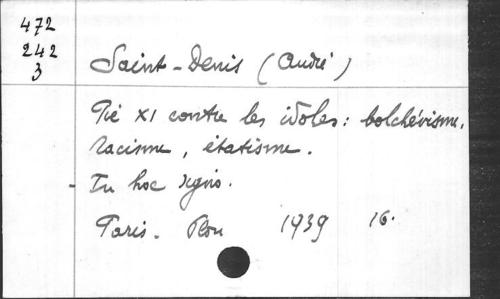 472
242
3
Saint-Denis (André)
Pie XI contre les idoles: bolchévisme,
racisme, étatisme.
- In hoc signo.
Paris. Plon 1939 16.